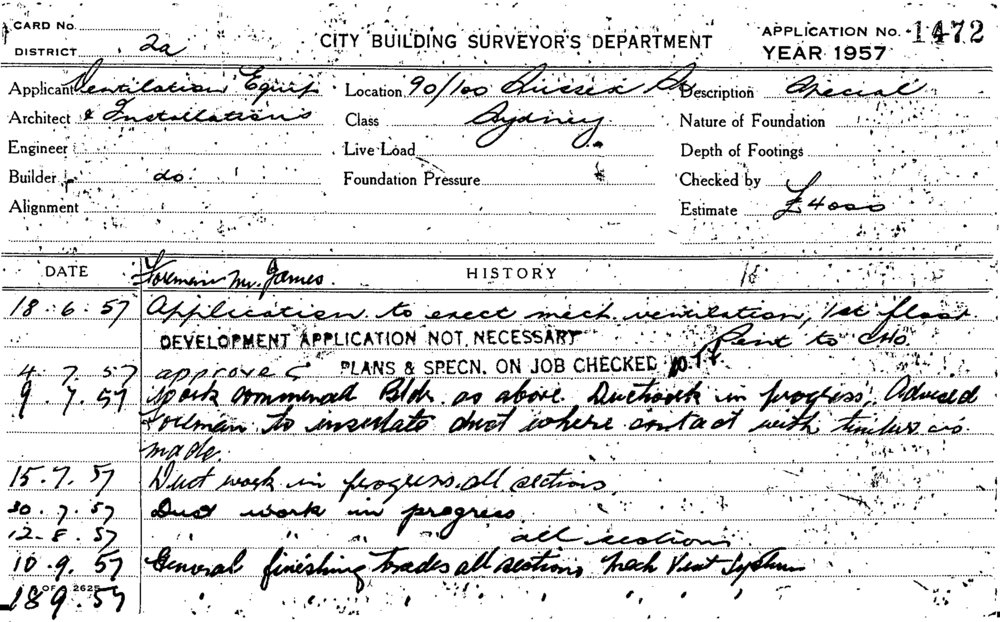 CARD No.
DISTRICT 2a
CITY BUILDING SURVEYOR'S DEPARTMENT
APPLICATION No. 1472
YEAR 1957
Applicant Ventilation Equip. Location 90/100 Sussex St Description Special
Architect & Installations Class Sydney Nature of Foundation
Engineer Live Load Depth of Footings
Builder do. Foundation Pressure Checked by
Alignment Estimate £4000
DATE Foreman Mr. James. HISTORY
18.6.57 Application to erect mech ventilation, 1st floor
DEVELOPMENT APPLICATION NOT NECESSARY to CHO.
4.7.57 approved PLANS & SPECN. ON JOB CHECKED
9.7.57 Work commenced Bldr. as above. Ductwork in progress. Advised
Foreman to insulate duct where contact with timber is
made.
15.7.57 Duct work in progress all sections
30.7.57 Duct work in progress
12.8.57 " " " " all sections
10.9.57 General finishing trades all sections Mech Vent System
OF 2625
18 9.57 " " " " " " "